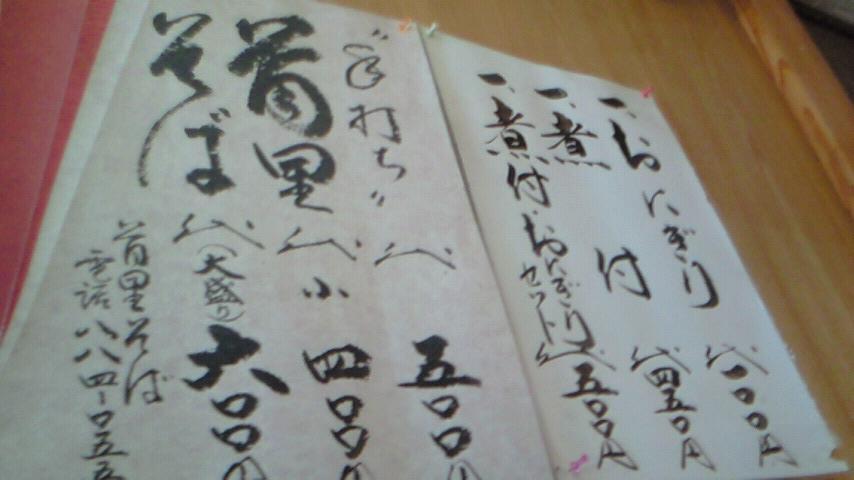 一、おにぎり 代一〇〇円
一、煮付 代四五〇円
一、煮付・おにぎりセット 代五〇〇円
"手打ち"
首里そば
代 五〇〇円
代 小 四〇〇円
代(大盛り) 六〇〇円
首里そば
電話 八八四-〇五五